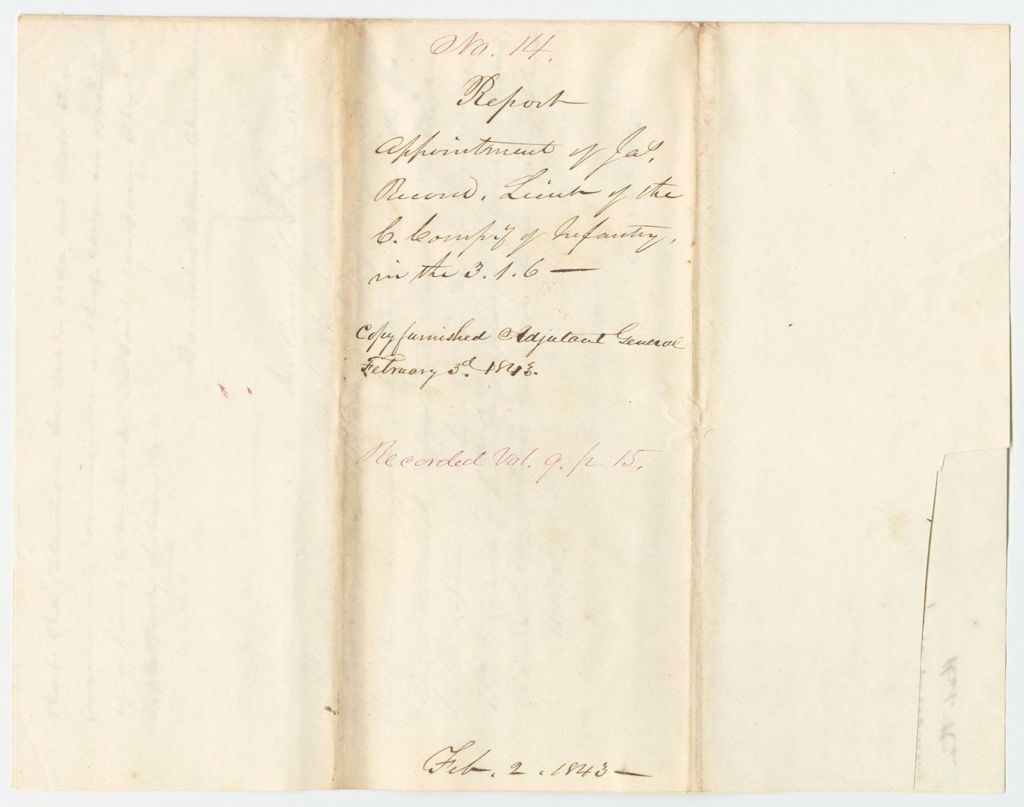 No. 14.
Report
Appointment of Jas.
Record. Lieut of the
C. Compy of Infantry,
in the 3. 1. 6 —
Copy furnished Adjutant General
February 3d. 1843.
Recorded Vol. 9. p. 15.
Feb. 2. 1843 —